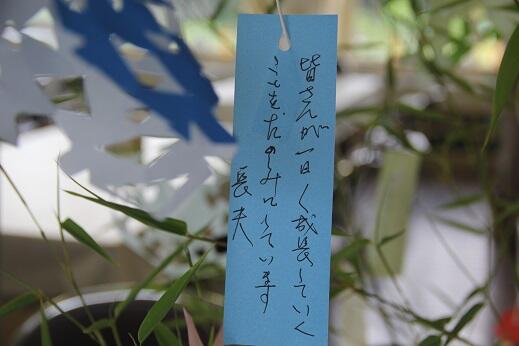 皆さんが一日〱成長していく
ことをたのしみにしています
長夫